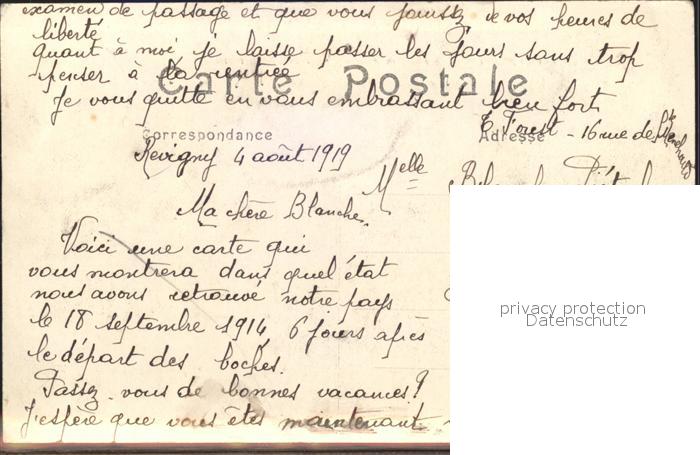 examen de passage et que vous jouissez de vos heures de
liberté
quant à moi je laisse passer les jours sans trop
penser à la rentrée
Carte Postale
Je vous quitte en vous embrassant bien fort
Correspondance
Adresse
16 rue de
Revigny 4 août 1919
Melle
Ma chère Blanche.
Voici une carte qui
vous montrera dans quel état
nous avons retrouvé notre pays
le 18 septembre 1914, 6 jours après
le départ des boches.
Passez-vous de bonnes vacances?
J'espère que vous êtes maintenant
privacy protection
Datenschutz